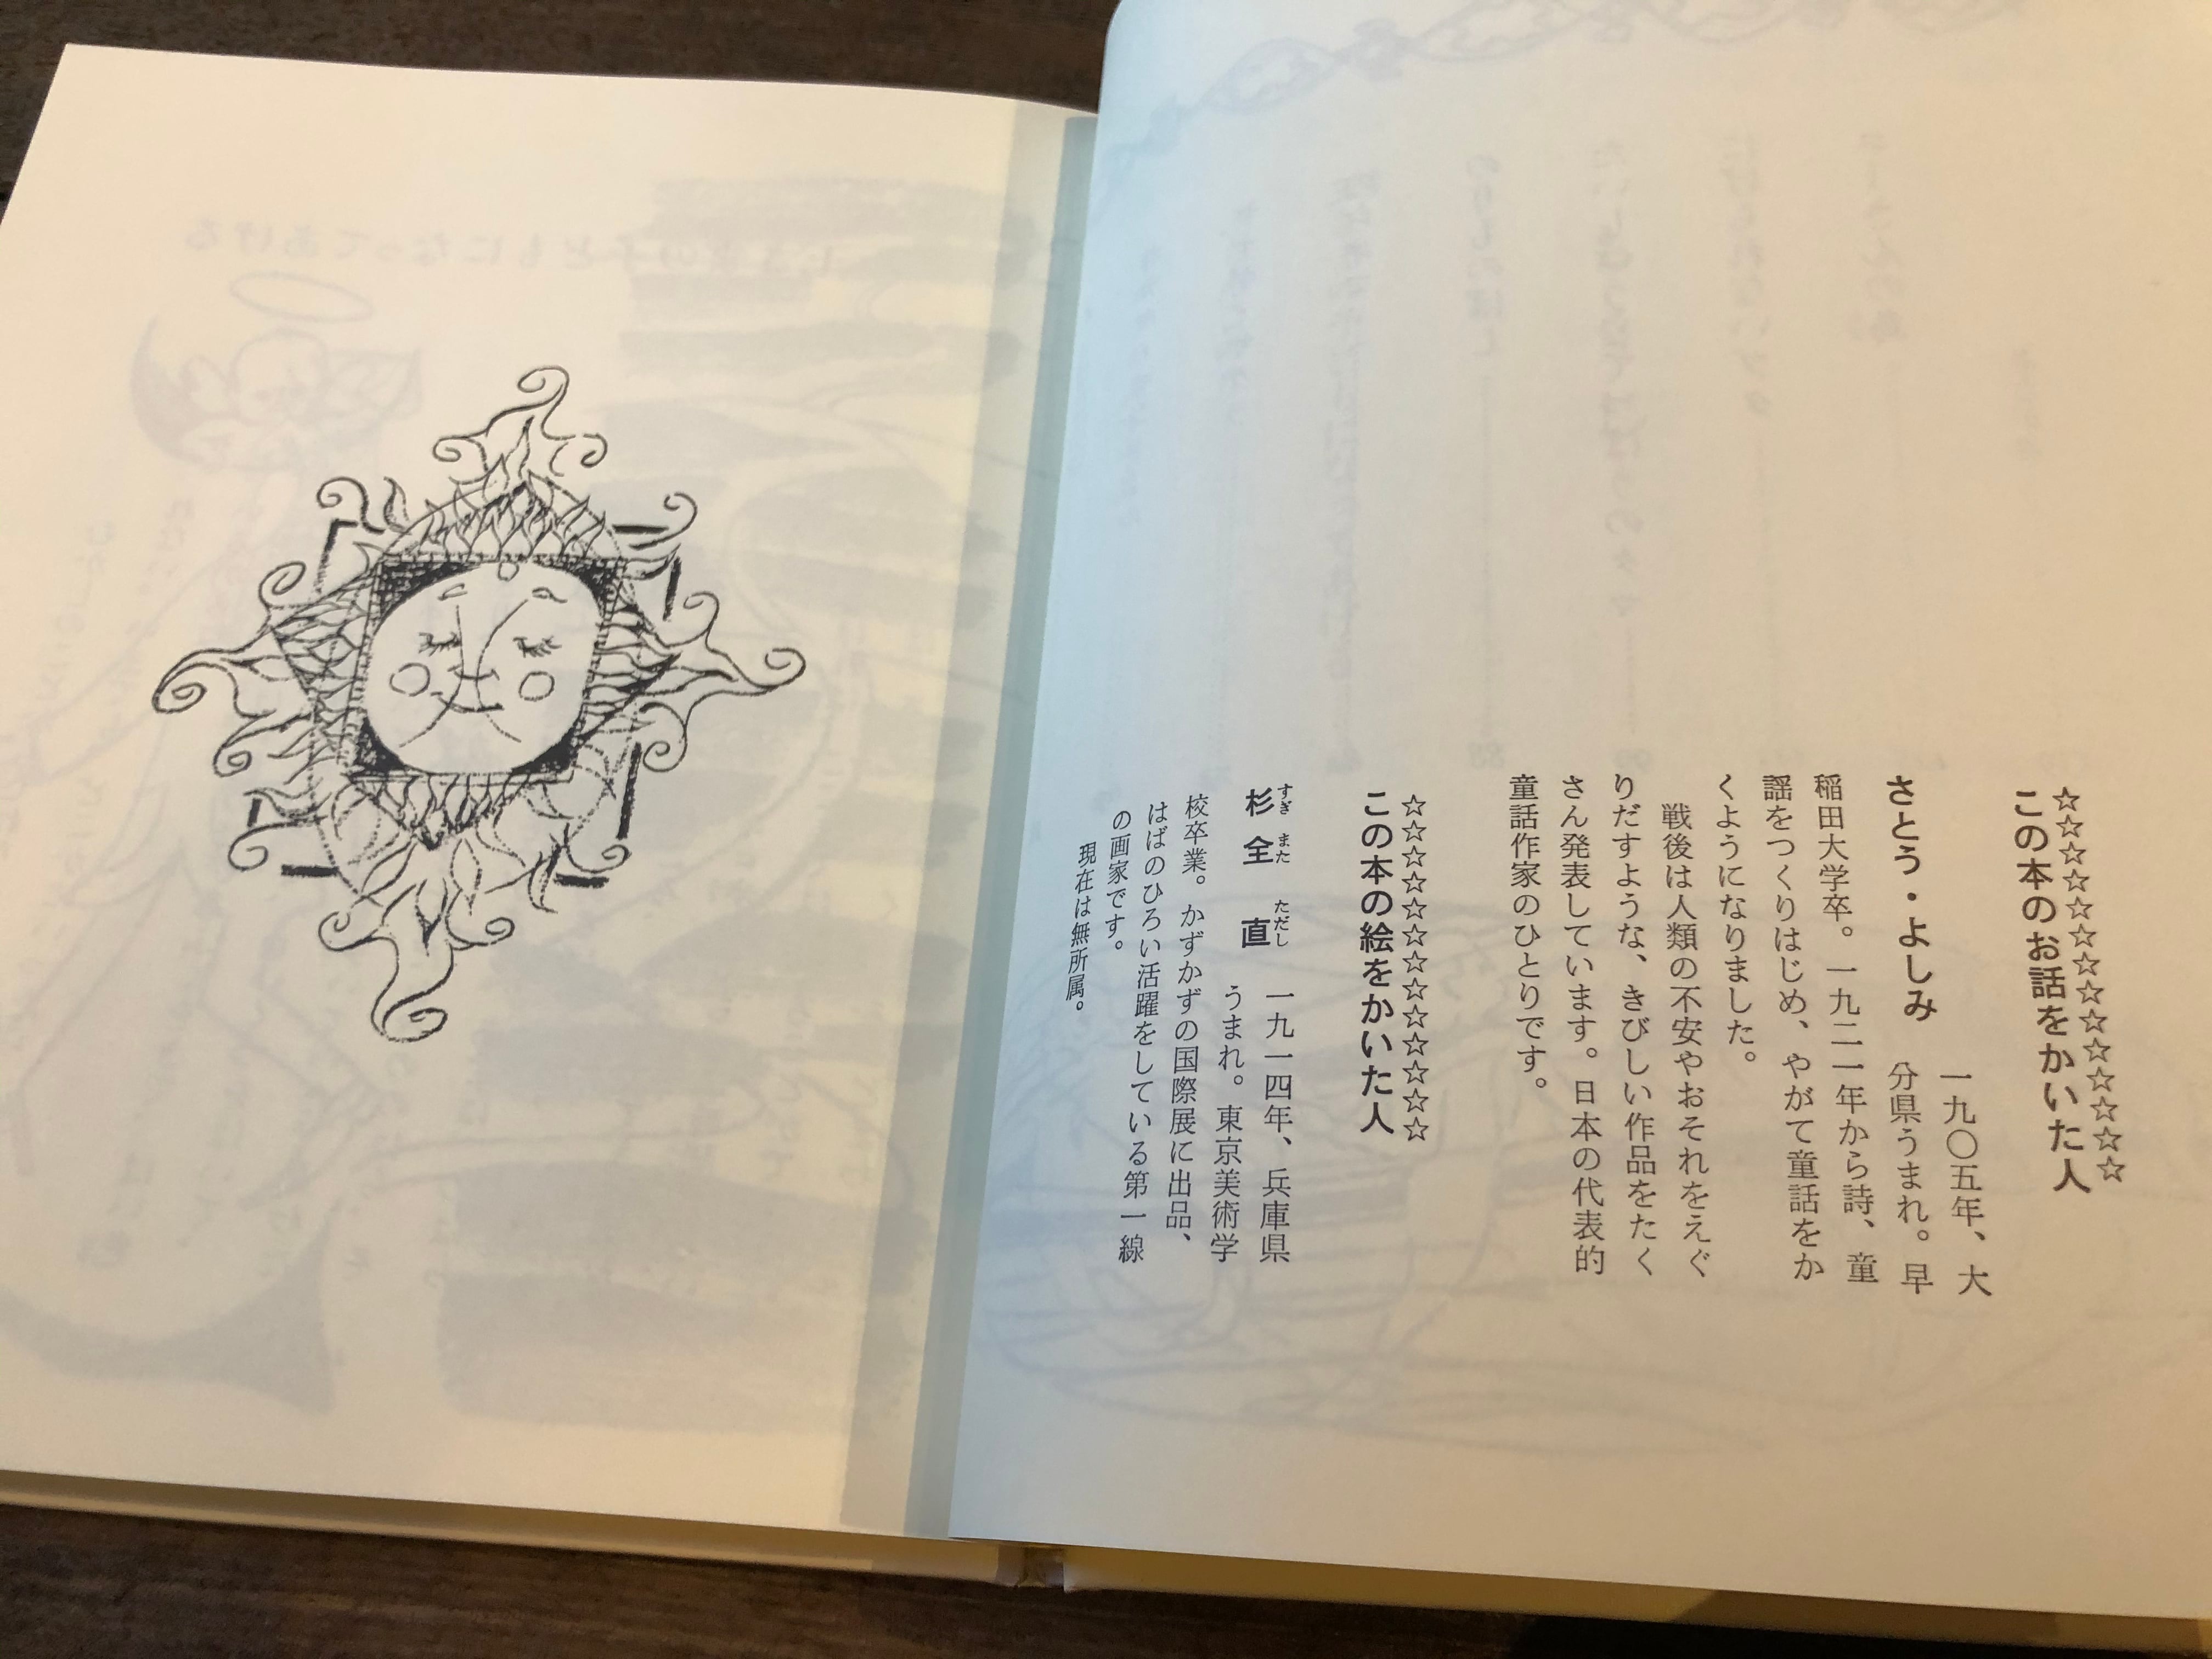 ☆☆☆☆☆☆☆☆☆☆☆☆☆☆
この本のお話をかいた人
さとう・よしみ
一九〇五年、大
分県うまれ。早
稲田大学卒。一九二一年から詩、童
謡をつくりはじめ、やがて童話をか
くようになりました。
戦後は人類の不安やおそれをえぐ
りだすような、きびしい作品をたく
さん発表しています。日本の代表的
童話作家のひとりです。
☆☆☆☆☆☆☆☆☆☆☆☆☆
この本の絵をかいた人
すぎ また ただし
杉全 直
一九一四年、兵庫県
うまれ。東京美術学
校卒業。かずかずの国際展に出品、
はばのひろい活躍をしている第一線
の画家です。
現在は無所属。